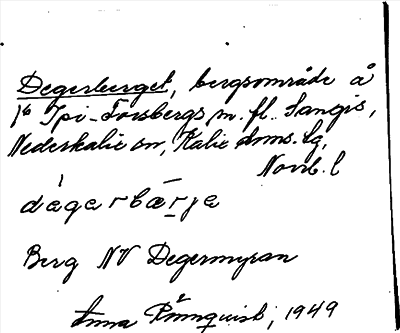 Degerberget, bergsområde å
Ipi-Forsbergs m. fl. Sangis,
Nederkalix sn, Kalix
Norrb. l
dägarbærja
Berg NV Degermyran
Anna Rönnquist, 1949